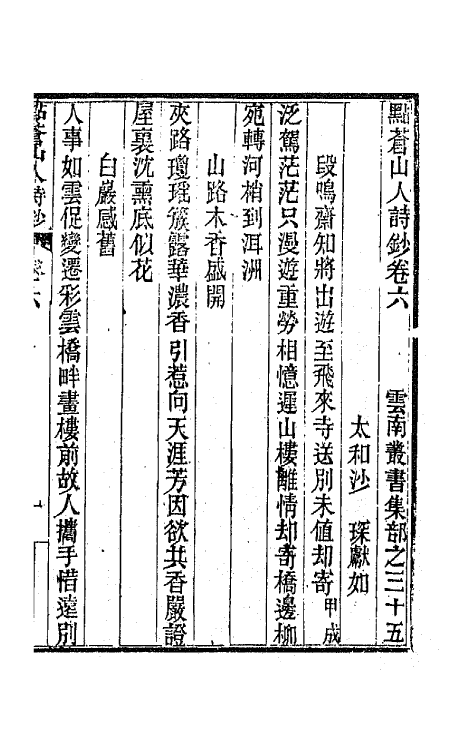 點蒼山人詩鈔卷六　雲南叢書集部之三十五
太和沙　琛獻如
段鳴齋知將出遊至飛來寺送別未值却寄甲戌
泛駕茫茫只漫遊重勞相憶遲山樓離情却寄橋邊柳
宛轉河梢到洱洲
山路木香盛開
夾路瓊瑶簇露華濃香引惹向天涯芳因欲共香嚴證
屋裏沈熏底似花
白巖感舊
人事如雲促變遷彩雲橋畔畫樓前故人攜手惜遠別
點蒼山人詩鈔　卷六　一